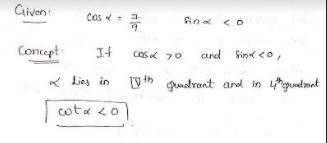 Given: cos α = 7/9 sin α < 0
Concept: If cos α > 0 and sin α < 0,
α lies in IVth quadrant and in 4th quadrant
cot α < 0